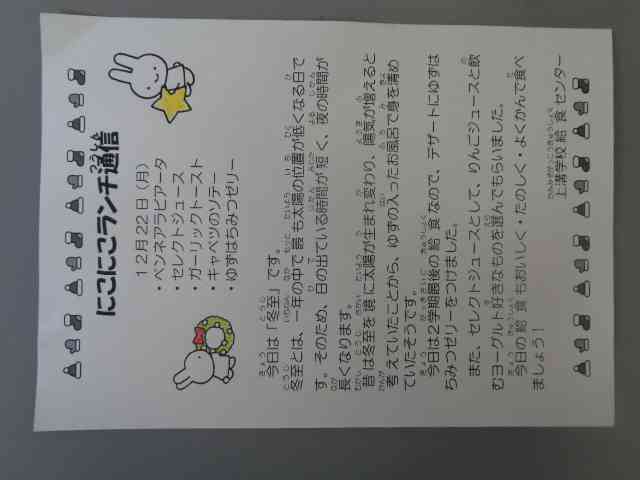 にこにこランチ通信
12月22日(月)
・ペンネアラビアータ
・セレクトジュース
・ガーリックトースト
・キャベツのソテー
・ゆずはちみつゼリー
今日は「冬至」です。
冬至とは、一年の中で最も太陽の位置が低くなる日で
す。そのため、日の出ている時間が短く、夜の時間が
長くなります。
昔は冬至を境に太陽が生まれ変わり、陽気が増えると
考えていたことから、ゆずの入ったお風呂で身を清め
ていたそうです。
今日は2学期最後の給食なので、デザートにゆずは
ちみつゼリーをつけました。
また、セレクトジュースとして、りんごジュースと飲
むヨーグルト好きなものを選んでもらいました。
今日の給食もおいしく・たのしく・よくかんで食べ
ましょう!
上溝学校給食センター